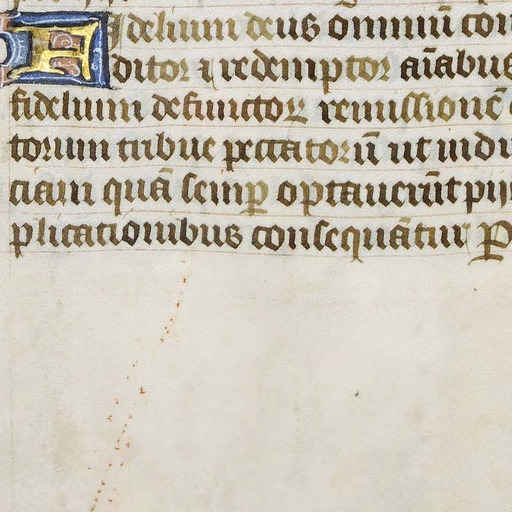 Fidelium deus omniū con
ditor ⁊ redemptor aīabus
fidelium defunctoꝝ remissionē
torum tribue peccatorū ut indu
ciam quā semꝑ optauerūt pij
plicationibus consequātur P